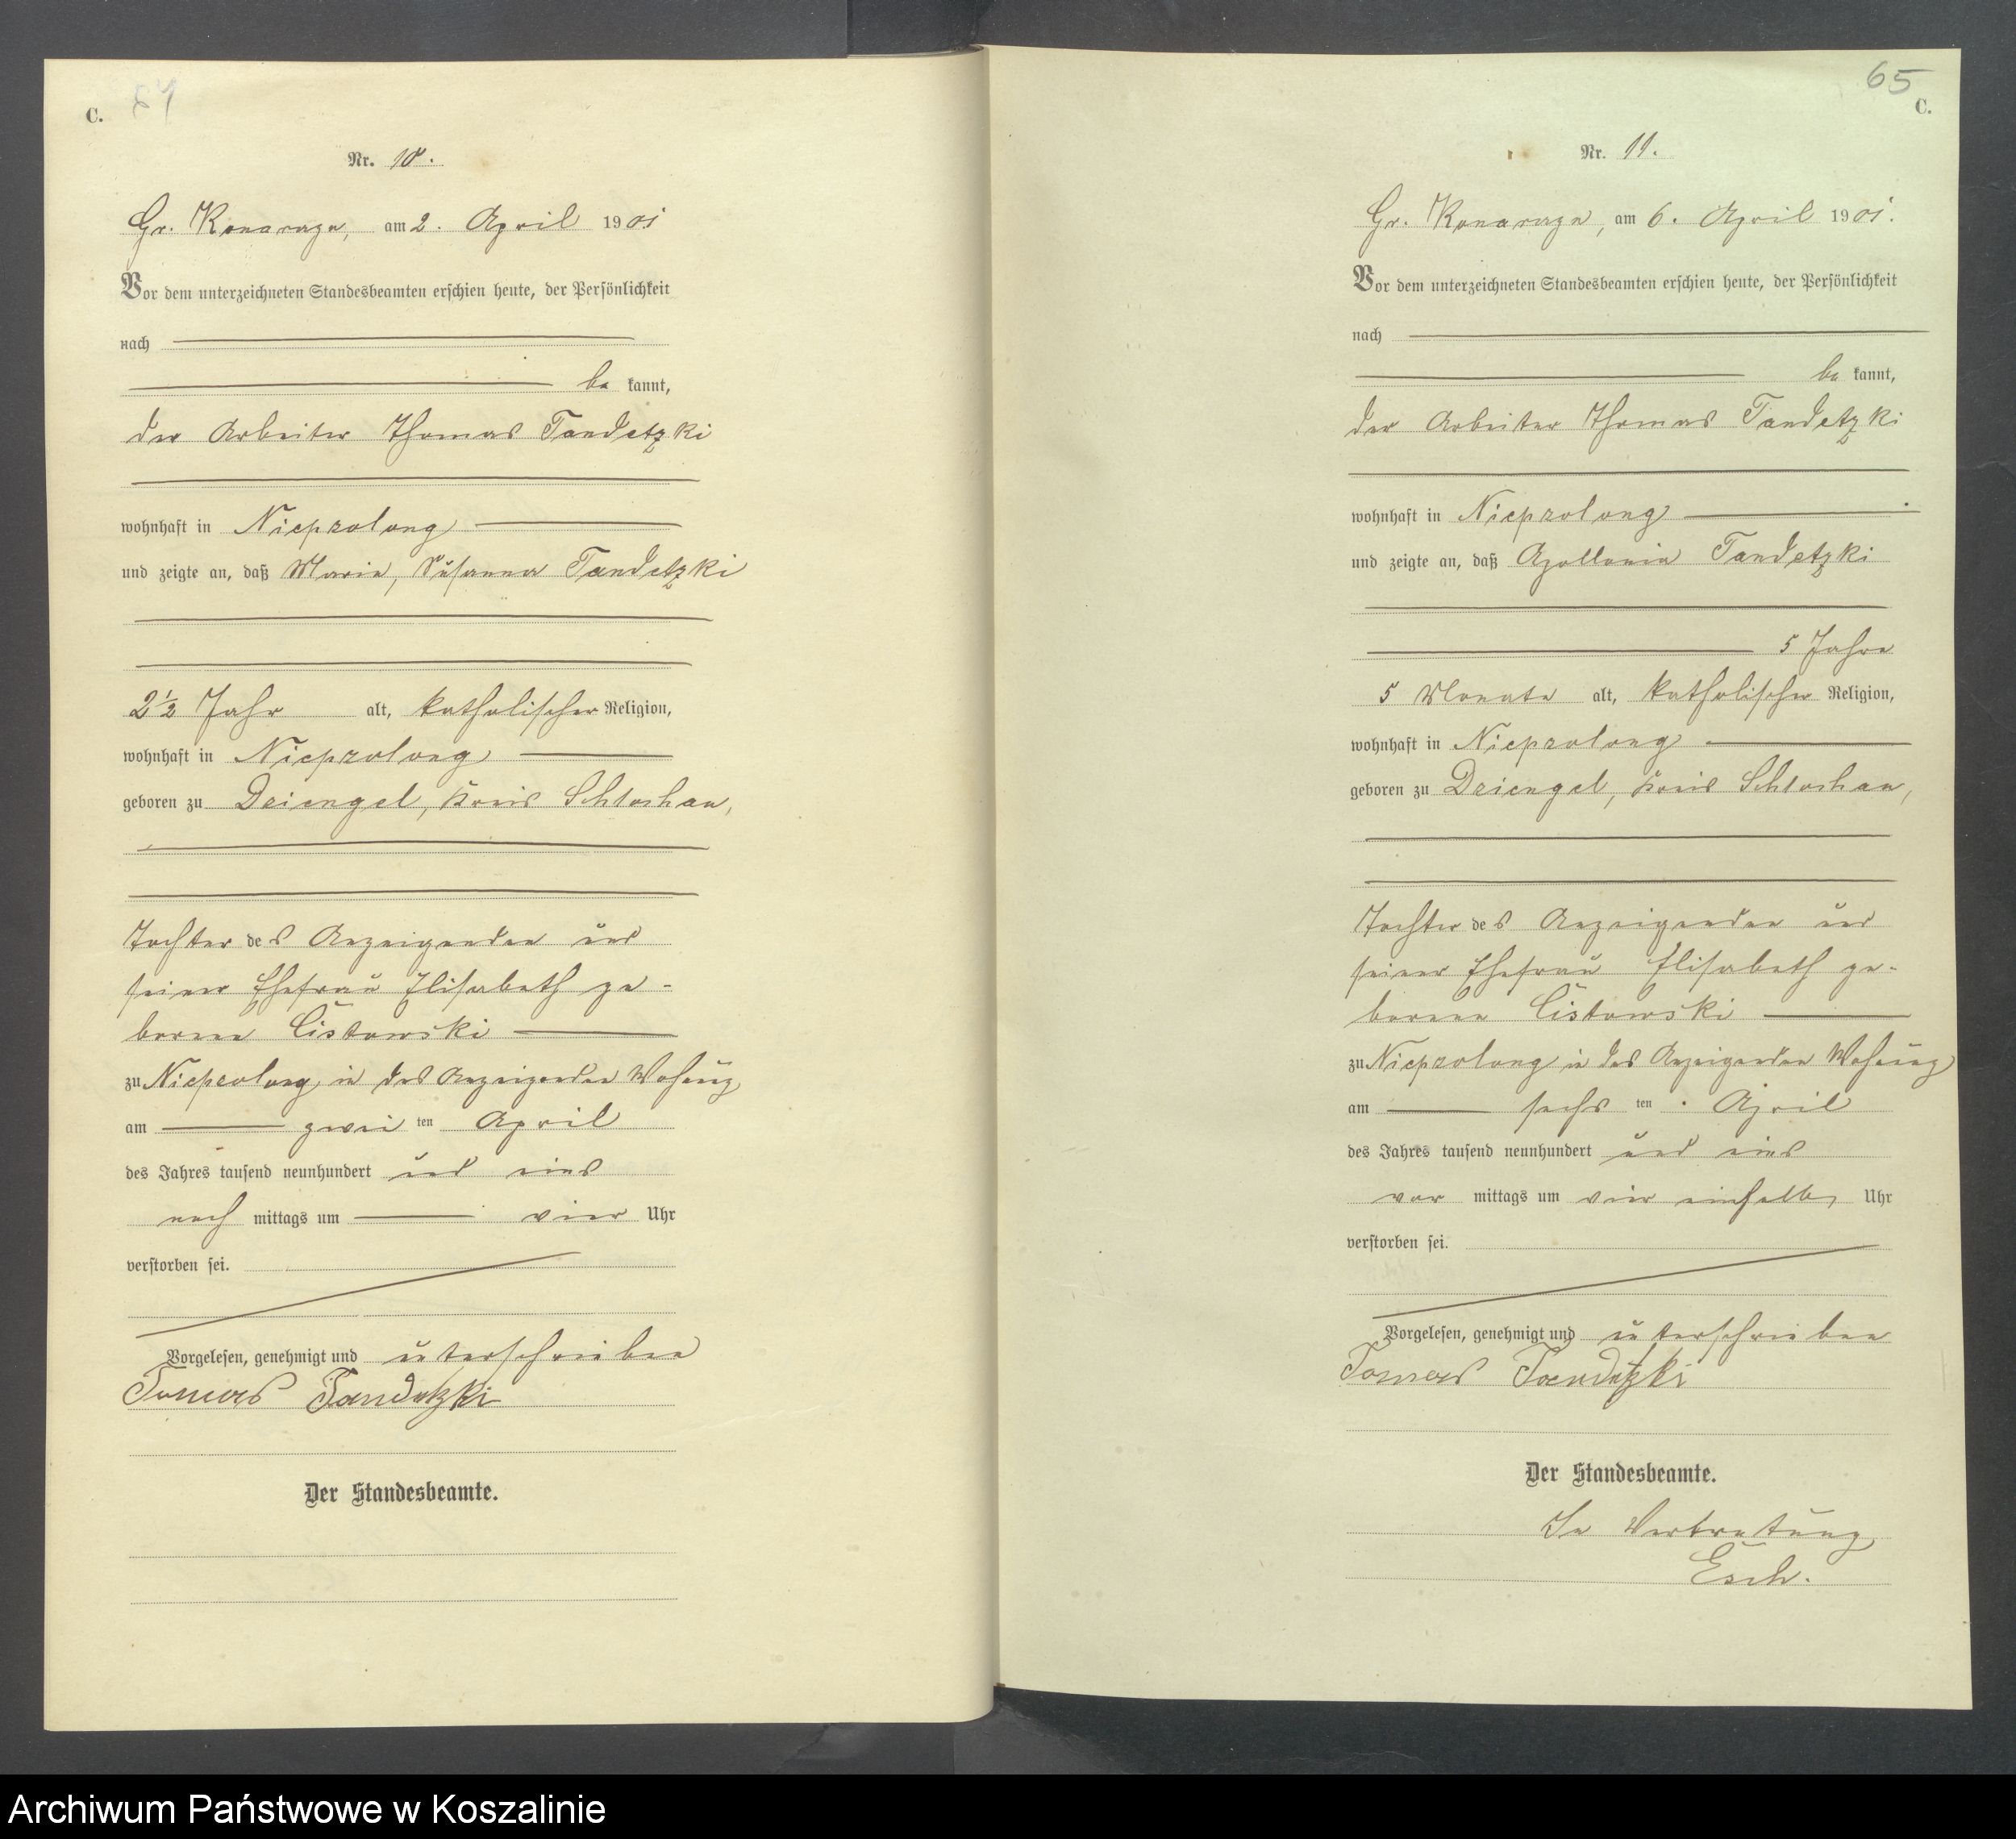 C.
64
Nr. 10.
Gr. Konarczyn, am 2. April 1901
Vor dem unterzeichneten Standesbeamten erschien heute, der Persönlichkeit
nach
be kannt,
der Arbeiter Thomas Tandetzki
wohnhaft in Nieprzolong
und zeigte an, daß Maria, Susanna Tandetzki
2½ Jahr alt, katholischer Religion,
wohnhaft in Nieprzolong
geboren zu Dziengel, Kreis Schlochau,
Tochter des Anzeigenden und
seiner Ehefrau Elisabeth ge-
borene Cistowski
zu Nieprzolong in des Anzeigenden Wohnung
am zweiten April
des Jahres tausend neunhundert und eins
nach mittags um vier Uhr
verstorben sei.
Vorgelesen, genehmigt und unterschrieben
Tomas Tandetzki
Der Standesbeamte.
65
C.
Nr. 11.
Gr. Konarczyn, am 6. April 1901.
Vor dem unterzeichneten Standesbeamten erschien heute, der Persönlichkeit
nach
be kannt,
der Arbeiter Thomas Tandetzki
wohnhaft in Nieprzolong
und zeigte an, daß Apollonia Tandetzki
5 Jahre
5 Monate alt, katholischer Religion,
wohnhaft in Nieprzolong
geboren zu Dziengel, Kreis Schlochau,
Tochter des Anzeigenden und
seiner Ehefrau Elisabeth ge-
borene Cistowski
zu Nieprzolong in des Anzeigenden Wohnung
am sechsten April
des Jahres tausend neunhundert und eins
vor mittags um vier einhalb Uhr
verstorben sei.
Vorgelesen, genehmigt und unterschrieben
Tomas Tandetzki
Der Standesbeamte.
In Vertretung
Esch.
Archiwum Państwowe w Koszalinie